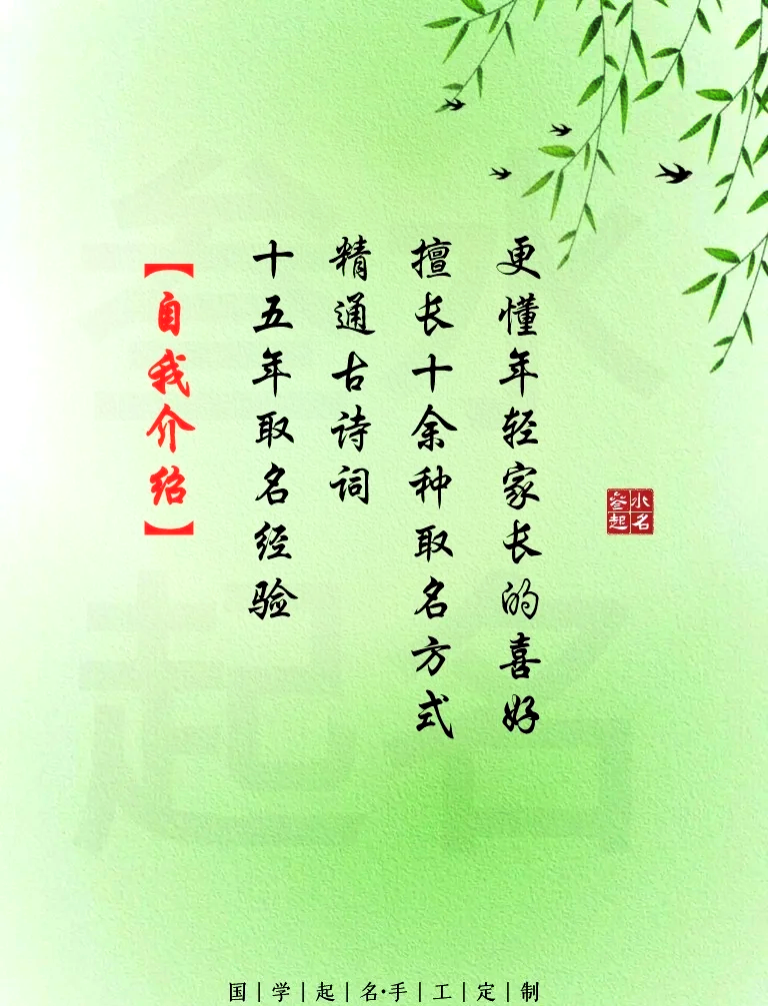 【自我介绍】
十五年取名经验
精通古诗词
擅长十余种取名方式
更懂年轻家长的喜好
小名
叁起
国|学|起|名·手|工|定|制